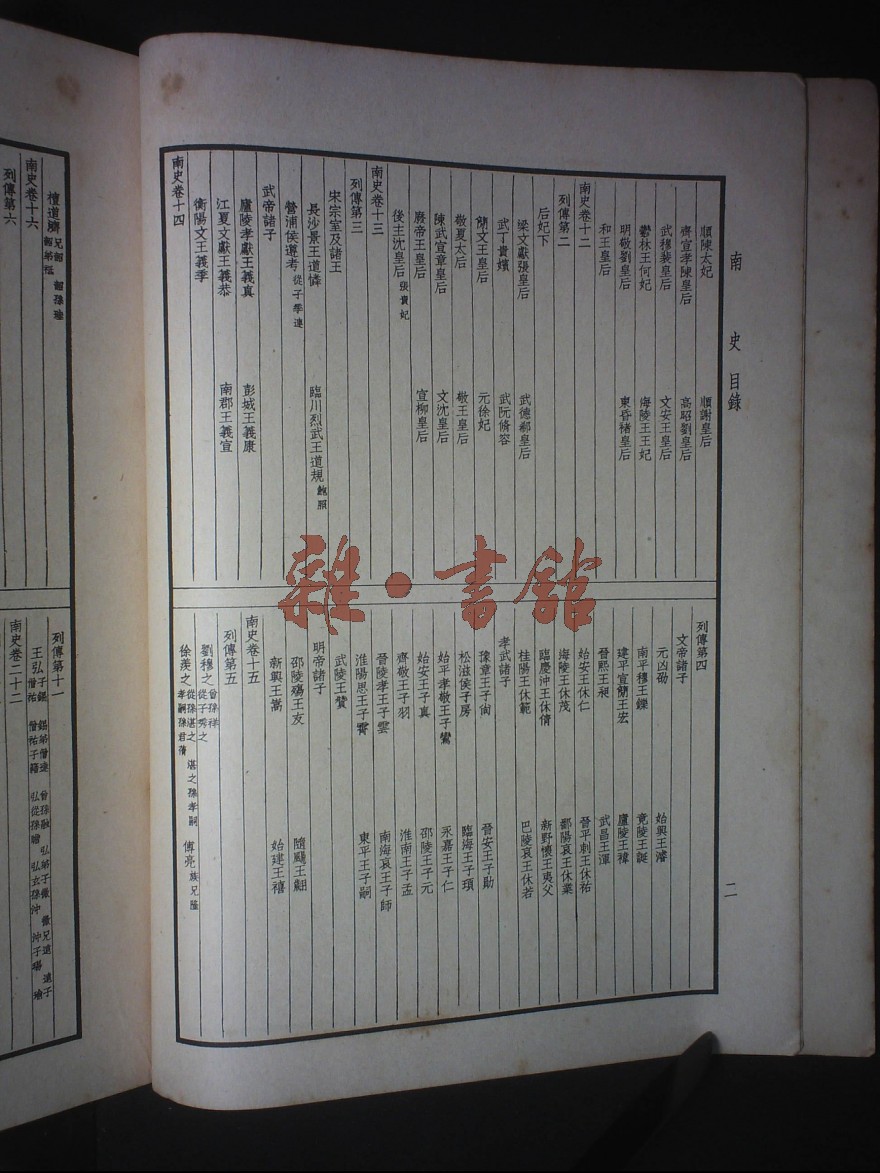 南史目錄
二
順陳太妃 順謝皇后
齊宣孝陳皇后 高昭劉皇后
武穆裴皇后 文安王皇后
鬱林王何妃 海陵王王妃
明敬劉皇后 東昏褚皇后
和王皇后
南史卷十二
列傳第二
后妃下
梁文獻張皇后 武德郗皇后
武丁貴嬪 武阮脩容
簡文王皇后 元徐妃
敬夏太后 敬王皇后
陳武宣章皇后 文沈皇后
廢帝王皇后 宣柳皇后
後主沈皇后 張貴妃
南史卷十三
列傳第三
宋宗室及諸王
長沙景王道憐 臨川烈武王道規 鮑照
營浦侯遵考 從子季連
武帝諸子
廬陵孝獻王義真 彭城王義康
江夏文獻王義恭 南郡王義宣
衡陽文王義季
南史卷十四
列傳第四
文帝諸子
元凶劭 始興王濬
南平穆王鑠 竟陵王誕
建平宣簡王宏 廬陵王褘
晉熙王昶 武昌王渾
始安王休仁 晉平剌王休祐
海陵王休茂 鄱陽哀王休業
臨慶沖王休倩 新野懷王夷父
桂陽王休範 巴陵哀王休若
孝武諸子
豫章王子尚 晉安王子勛
松滋侯子房 臨海王子頊
始平孝敬王子鸞 永嘉王子仁
始安王子真 邵陵王子元
齊敬王子羽 淮南王子孟
晉陵孝王子雲 南海哀王子師
淮陽思王子霄 東平王子嗣
武陵王贊
明帝諸子
邵陵殤王友 隨陽王翽
新興王嵩 始建王禧
南史卷十五
列傳第五
劉穆之 曾孫祥 從子秀之
徐羨之 從孫湛之 湛之孫孝嗣 孝嗣孫君蒨 傅亮 族兄隆
檀道濟 兄韶 韶孫珪 韶弟祗
南史卷十六
列傳第六
列傳第十一
王弘 子錫 錫弟僧達 曾孫融 弘弟子微 微兄遠 遠子僧祐 僧祐子籍 弘從孫瞻 弘玄孫沖 沖子瑒 瑜
南史卷二十二
雜·書館